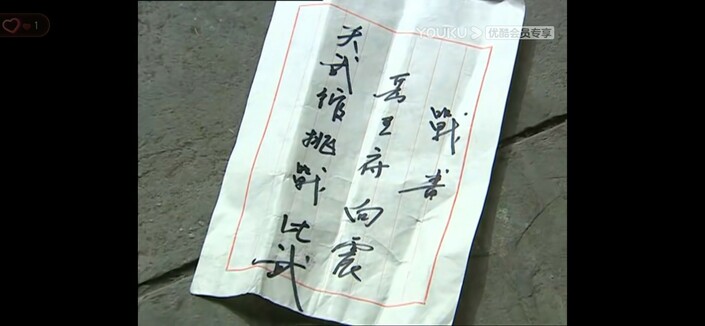 1
YOUKU 优酷会员专享
戰書
王府向震
天武館挑戰比武